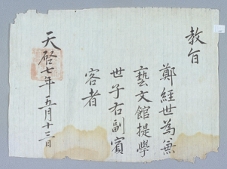 教旨
鄭經世爲兼
藝文館提學
世子右副賓
客者
天啓七年五月十三日